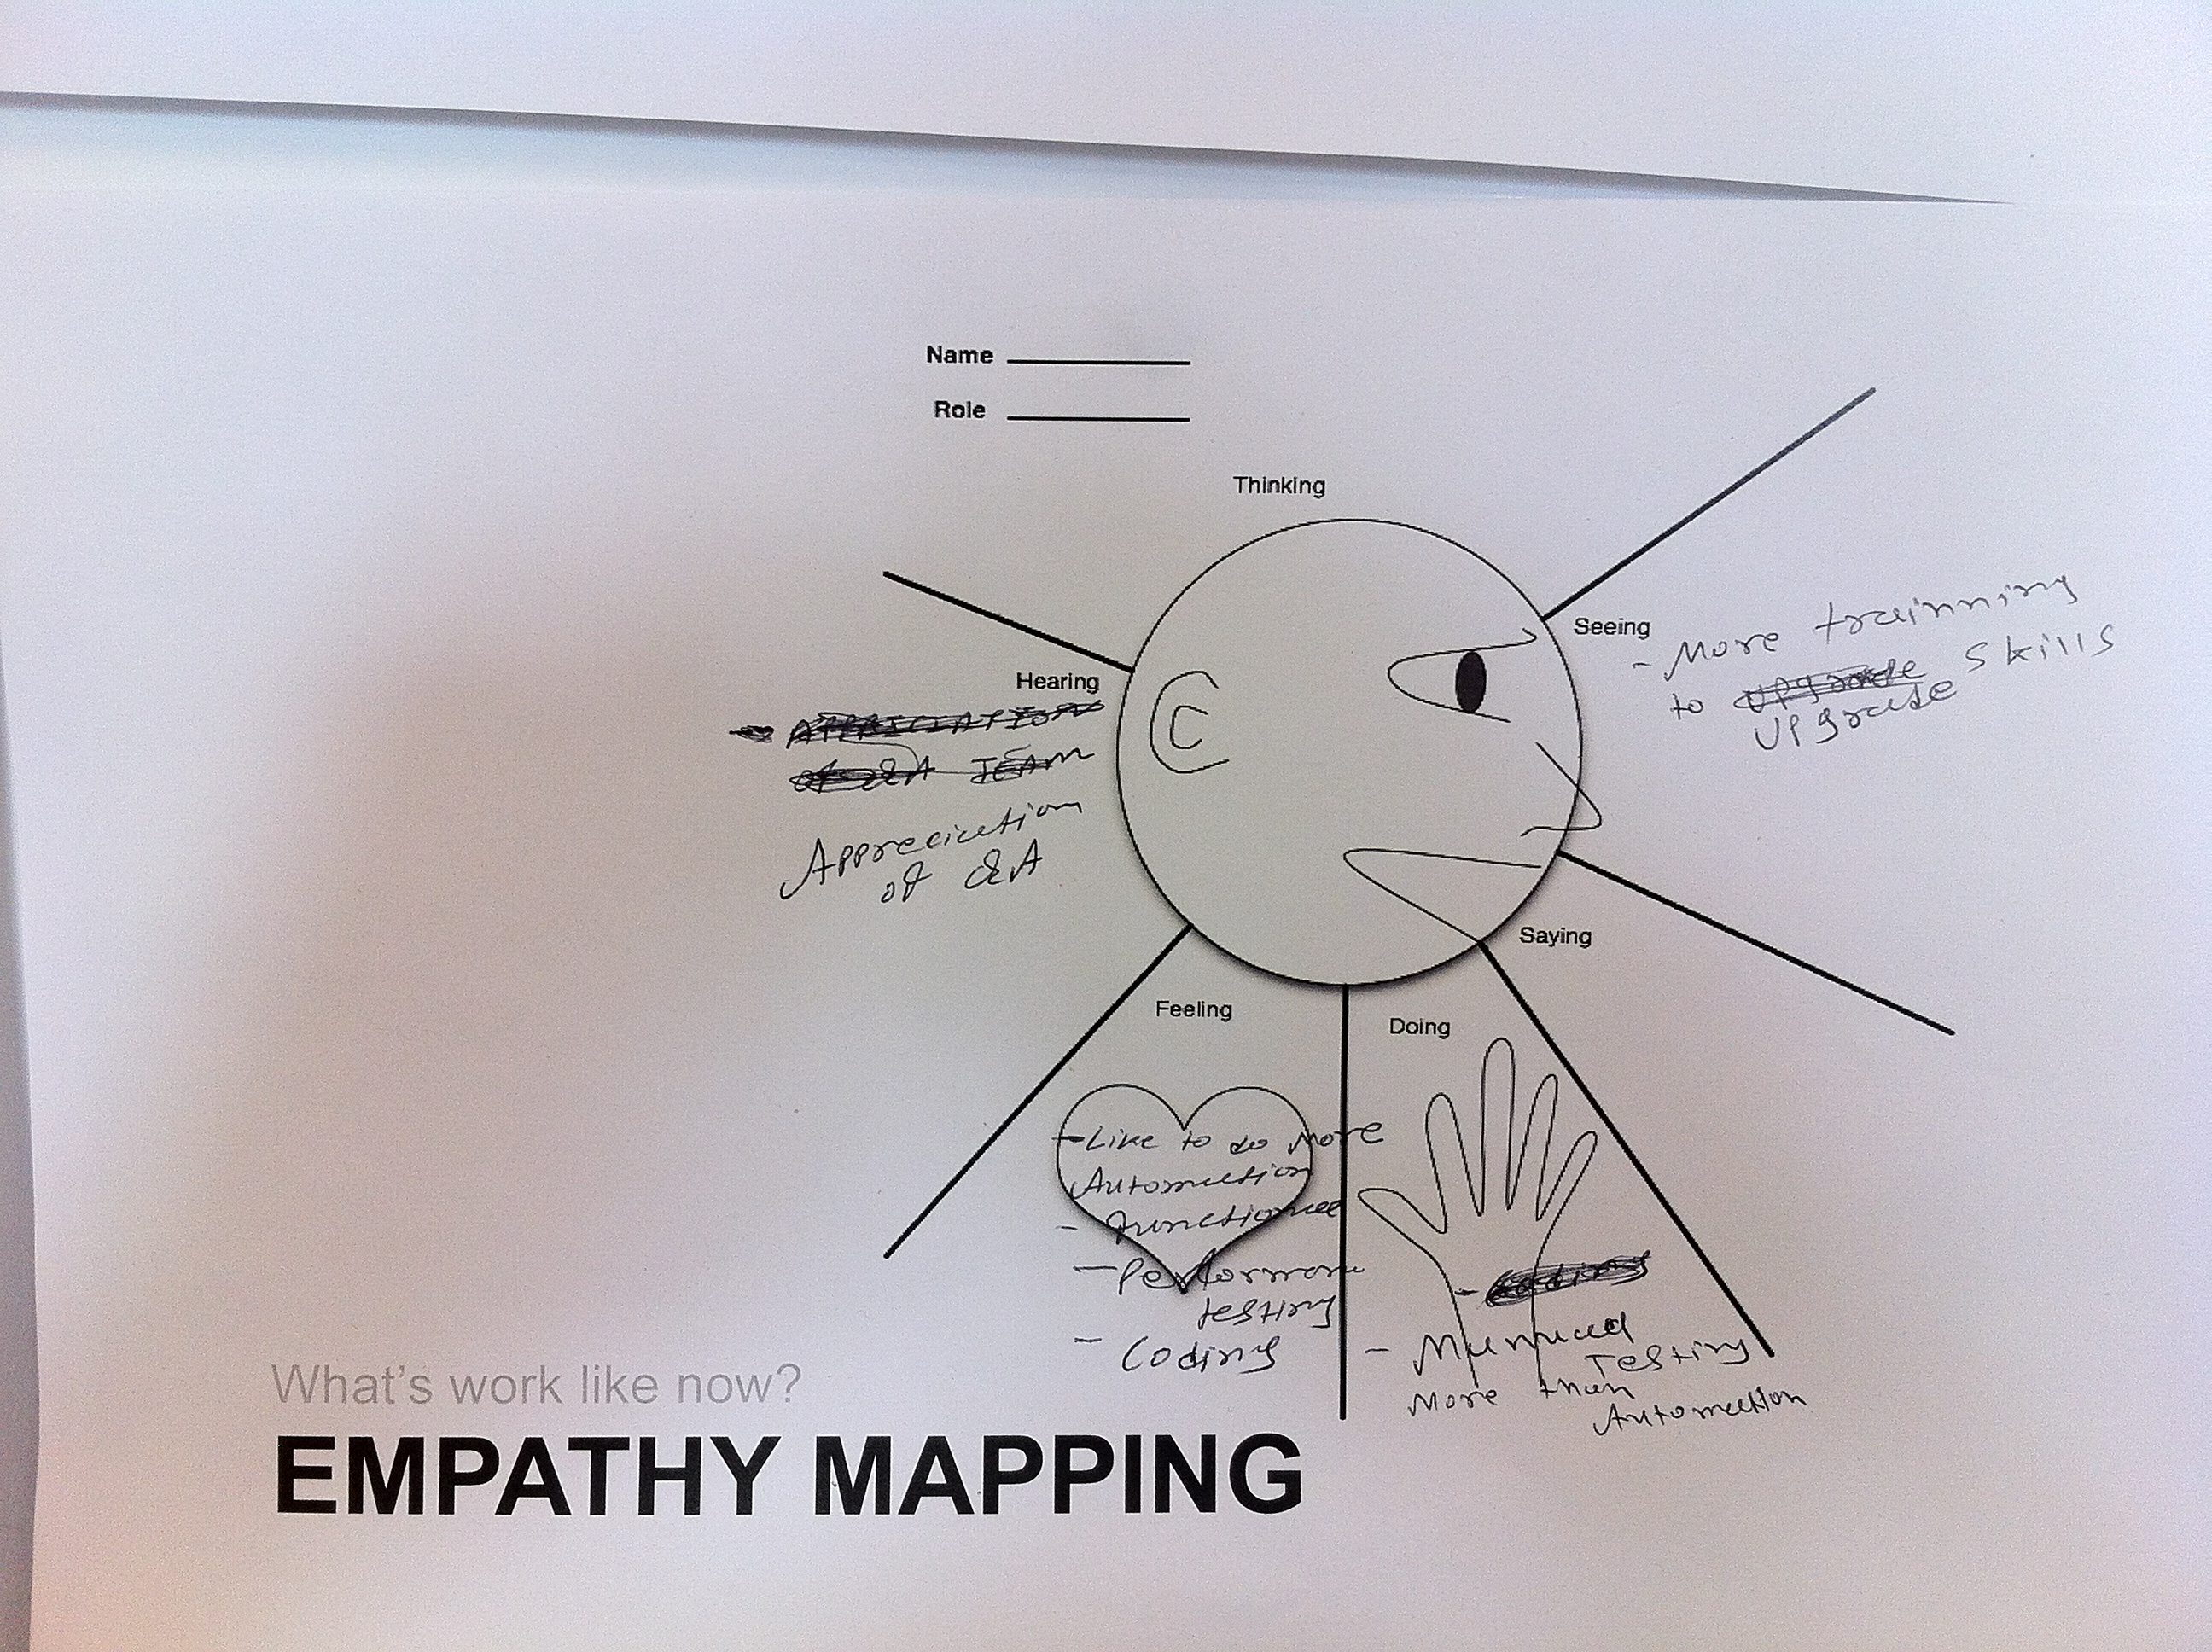 Name
Role
Thinking
Seeing
- More trainning
to upgrade skills
upgrade
Hearing
- APPRICIATION
of QA TEAM
Appreciation
of QA
Saying
Feeling
- Like to do more
Automation
- functional
- Performance
testing
- Coding
Doing
- Coding
- Manual
Testing
More than
Automation
What's work like now?
EMPATHY MAPPING